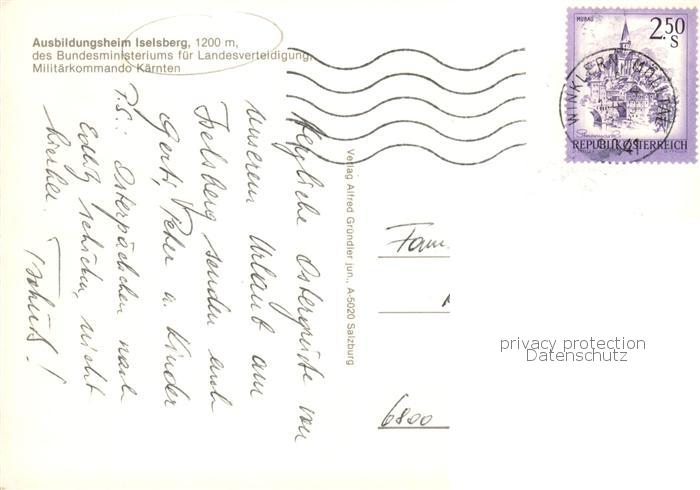 Ausbildungsheim Iselsberg, 1200 m,
des Bundesministeriums für Landesverteidigung,
Militärkommando Kärnten
Herzliche Ostergrüße von
unserem Urlaub am
Iselsberg senden euch
Gerti, Peter u. Kinder
P.S.: Osterpäckchen nach
schicken, nicht
hierher. Tschüß!
Verlag Alfred Gründler jun., A-5020 Salzburg
MURAU
2.50
S
WINKLERN
REPUBLIK ÖSTERREICH
Fam.
6800
privacy protection
Datenschutz